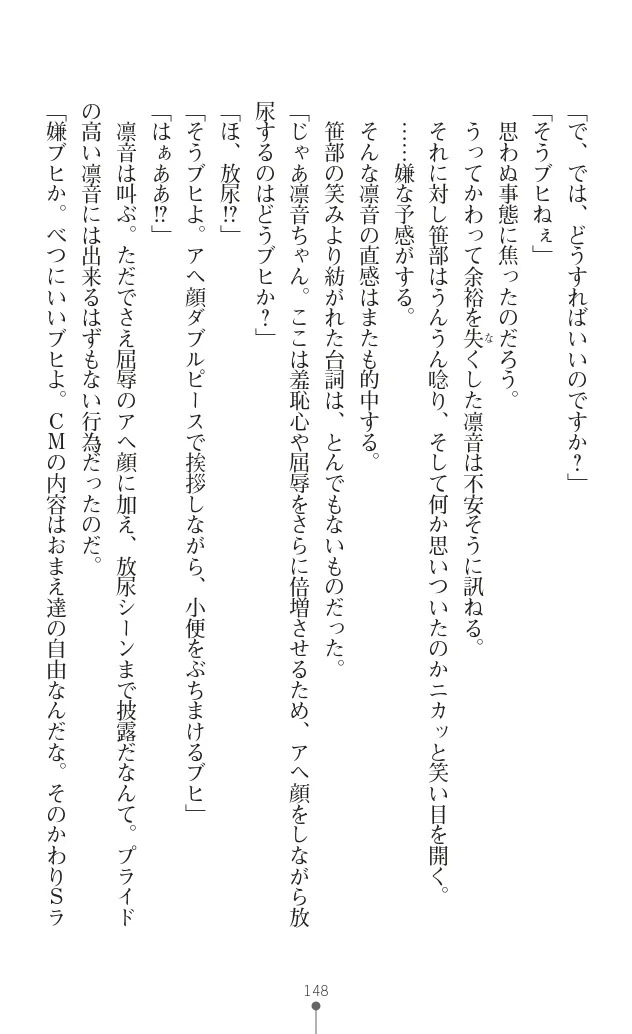 「で、では、どうすればいいのですか？」
「そうブヒねぇ」
思わぬ事態に焦ったのだろう。
うってかわって余裕を失くした凛音は不安そうに訊ねる。
それに対し笹部はうんうん唸り、そして何か思いついたのかニカッと笑い目を開く。
……嫌な予感がする。
そんな凛音の直感はまたも的中する。
笹部の笑みより紡がれた台詞は、とんでもないものだった。
「じゃあ凛音ちゃん。ここは羞恥心や屈辱をさらに倍増させるため、アヘ顔をしながら放
尿するのはどうブヒか？」
「ほ、放尿!?」
「そうブヒよ。アヘ顔ダブルピースで挨拶しながら、小便をぶちまけるブヒ」
「はぁああ!?」
凛音は叫ぶ。ただでさえ屈辱のアヘ顔に加え、放尿シーンまで披露だなんて。プライド
の高い凛音には出来るはずもない行為だったのだ。
「嫌ブヒか。べつにいいブヒよ。ＣＭの内容はおまえ達の自由なんだな。そのかわりＳラ
148